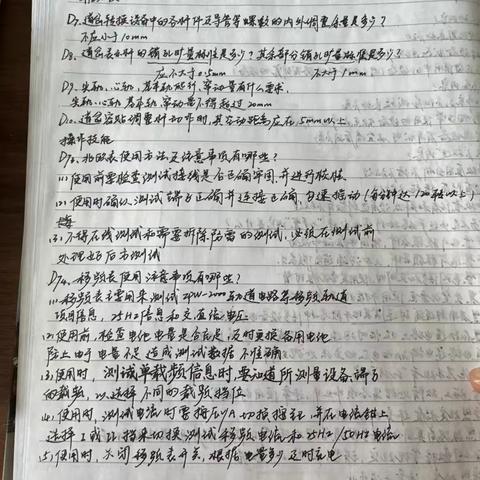 D7、道岔转换设备中的各种杆及导管等螺纹的内外调整余量是多少？
不应小于10mm
D8、道岔表示杆的销孔旷量标准是多少？其余部分销孔旷量标准是多少？
应不大于0.5mm 不大于1mm
D9、尖轨、心轨、基本轨 窜动量有什么要求.
尖轨、心轨、基本轨, 窜动量不得超过 20mm
D10、道岔密贴调整杆动作时, 其空动距离应在5mm以上
操作技能
使用方法及注意事项有哪些？
(1) 使用前要检查测试接线是否正确牢固, 并进行校验
(2) 使用时确认测试端子正确并连接正确, 匀速摇动 (每分钟达120转以上)
(3) 不得在线测试和需要拆除防雷的测试, 必须在测试前
处理好后方测试
D74、移频表使用注意事项有哪些？
(1) 移频表主要用来测试ZPW-2000轨道电路等移频轨道
信息, 25HZ信息和交直流电压
(2) 使用前, 检查电池电量是否充足, 及时更换备用电池
防止由于电量不足造成测试数据不准确
(3) 使用时, 测试单载频信息时, 要知道所测量设备端子
的载频, 以选择不同的载频档位
(4) 使用时, 测试电流时需将压/A切换 并在电流钳上
选择I或II档来切换测试移频电流和25HZ/50HZ电流
(5) 使用时, 关闭移频表开关, 根据电量多少及时充电